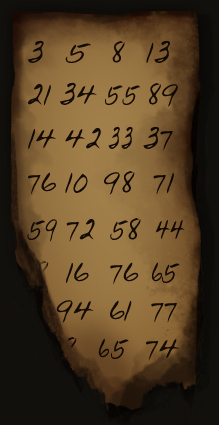 3 5 8 13
21 34 55 89
14 42 33 37
76 10 98 71
59 72 58 44
16 76 65
94 61 77
65 74